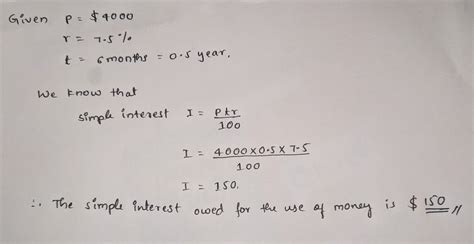 Given P = $4000
r = 7.5%
t = 6 months = 0.5 year.
We know that
simple interest I = Ptr/100
I = 4000×0.5×7.5/100
I = 150.
∴ The simple interest owed for the use of money is $150 //